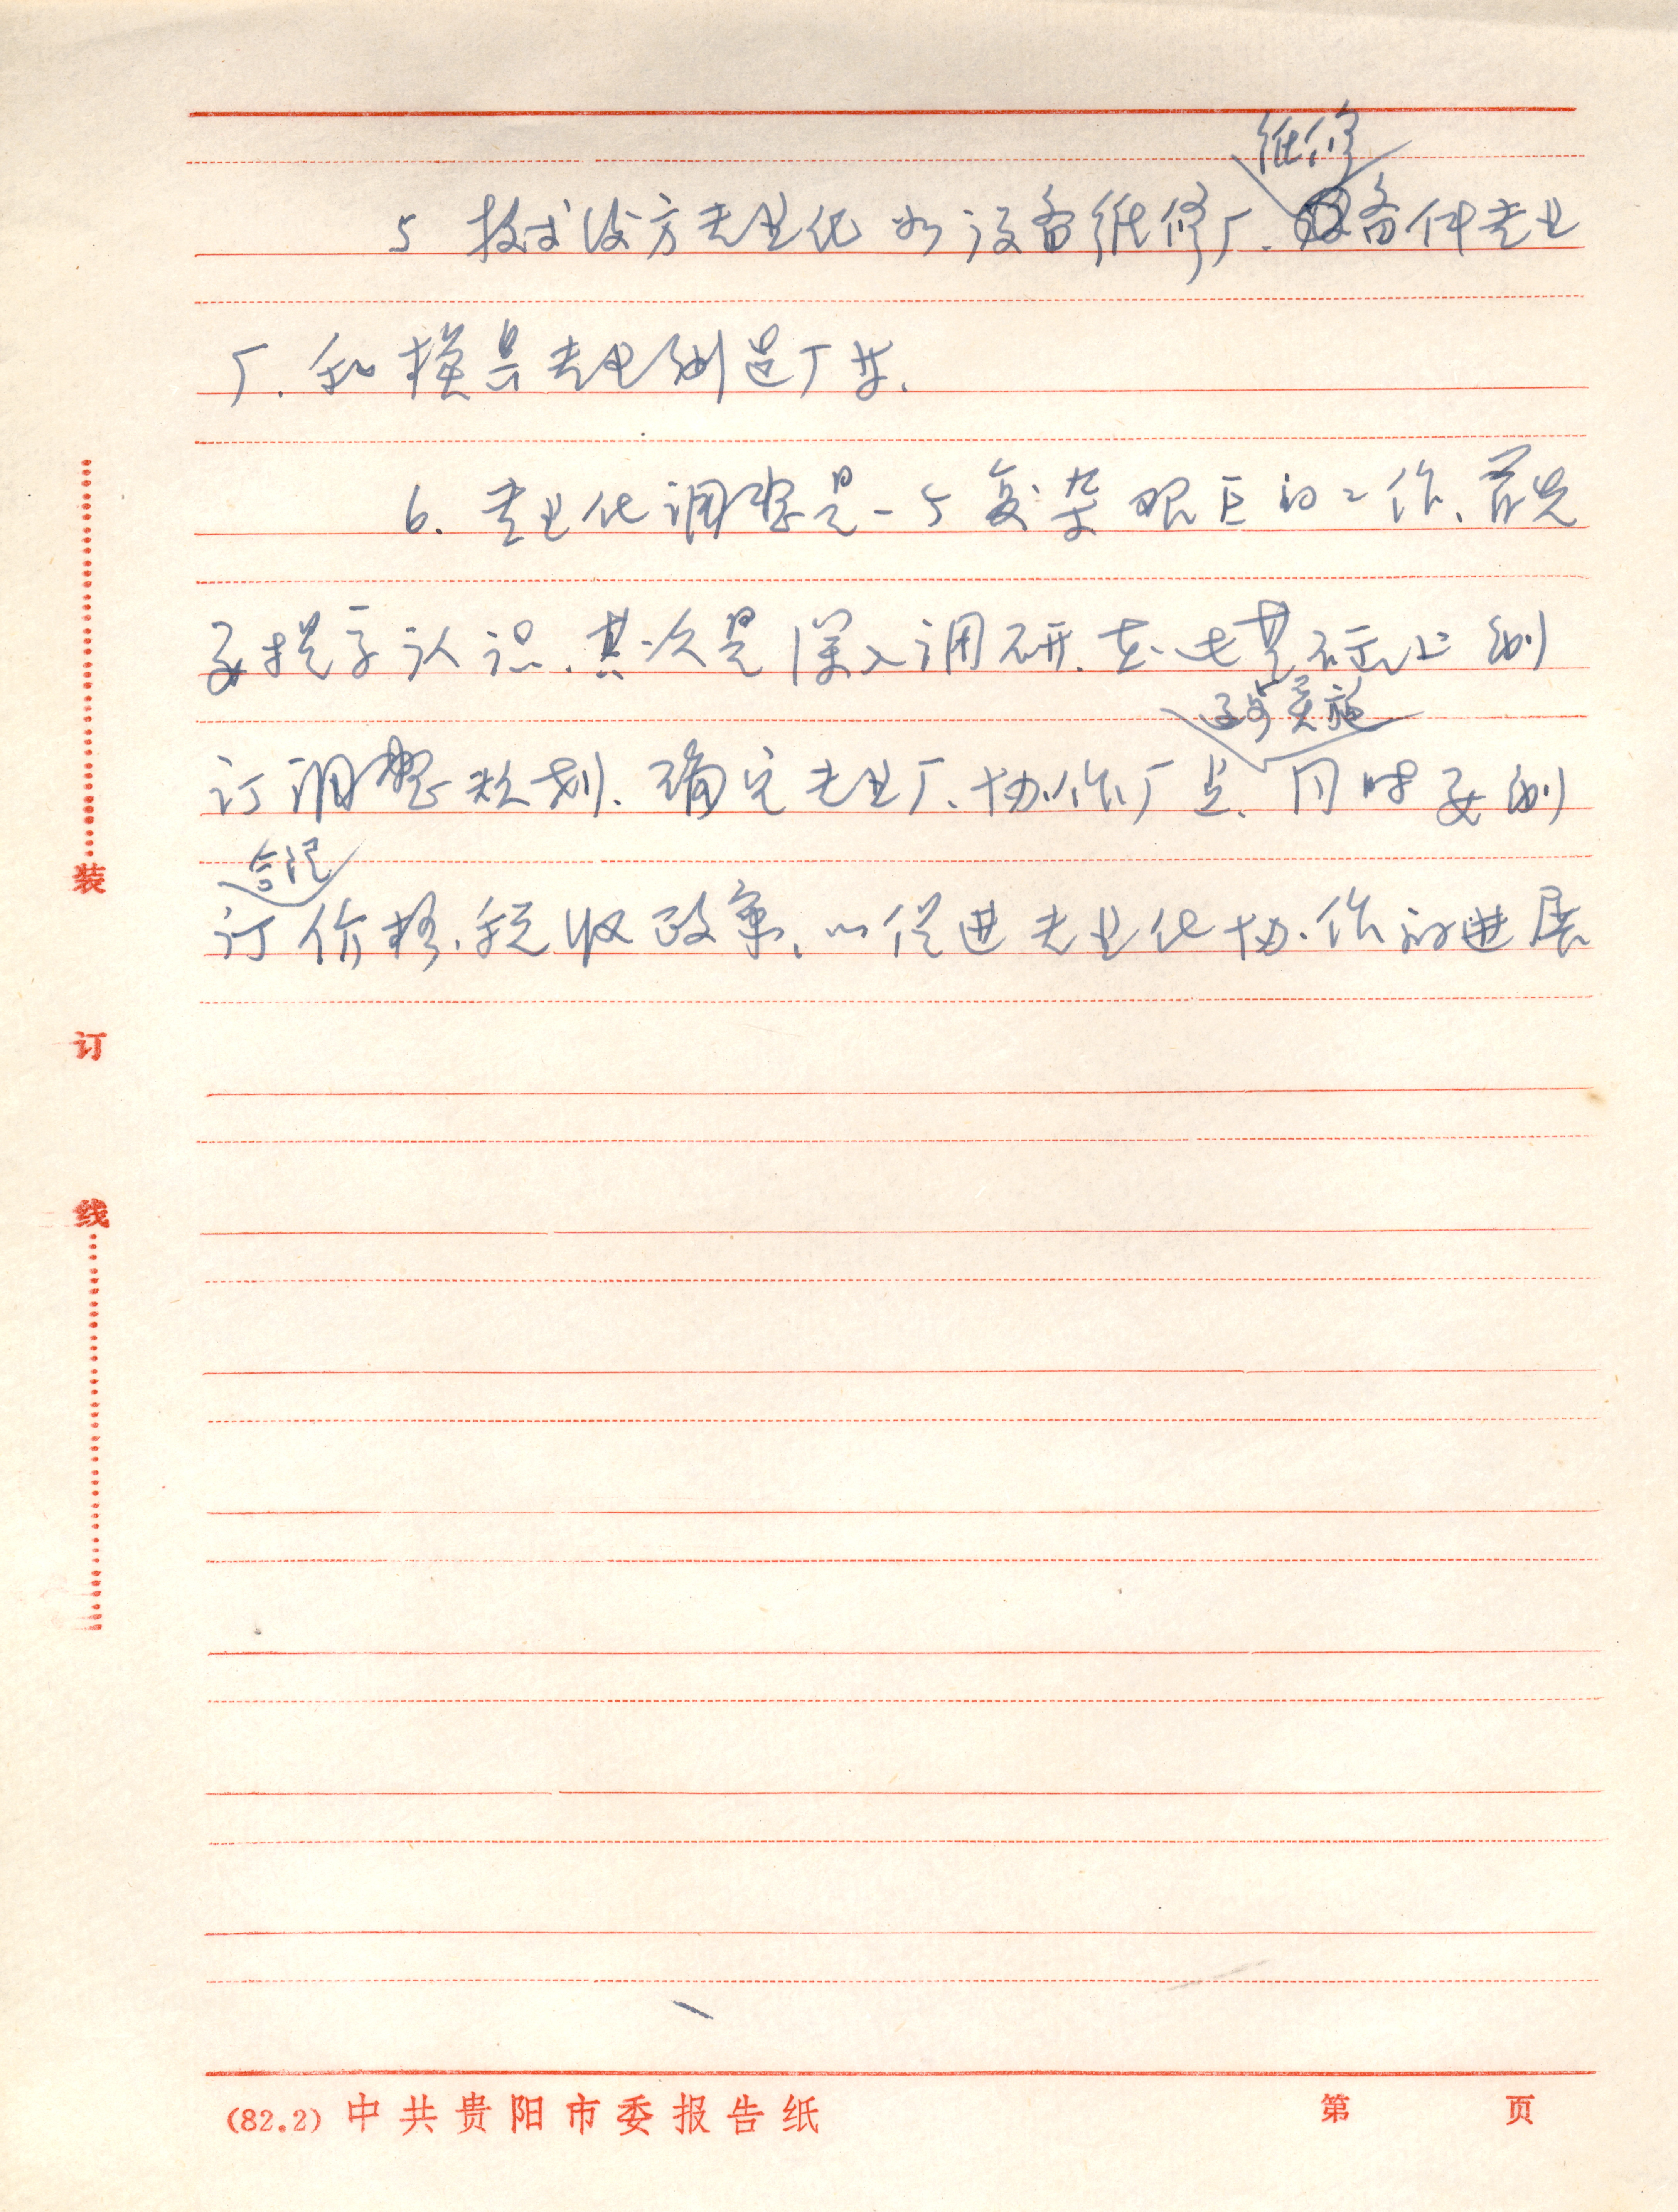 维修
5 技术後方专业化 如设备维修厂、备件专业
厂、和模具专业制造厂等.
6. 专业化调整是一个复杂艰巨的工作、首先
要提高认识、其次是深入调研、在此基础上制
逐步实施
订调整规划、确定专业厂、协作厂点、同时要制
合理
订价格、税收政策、以促进专业化协作的进展
装
订
线
(82.2) 中共贵阳市委报告纸 第 页